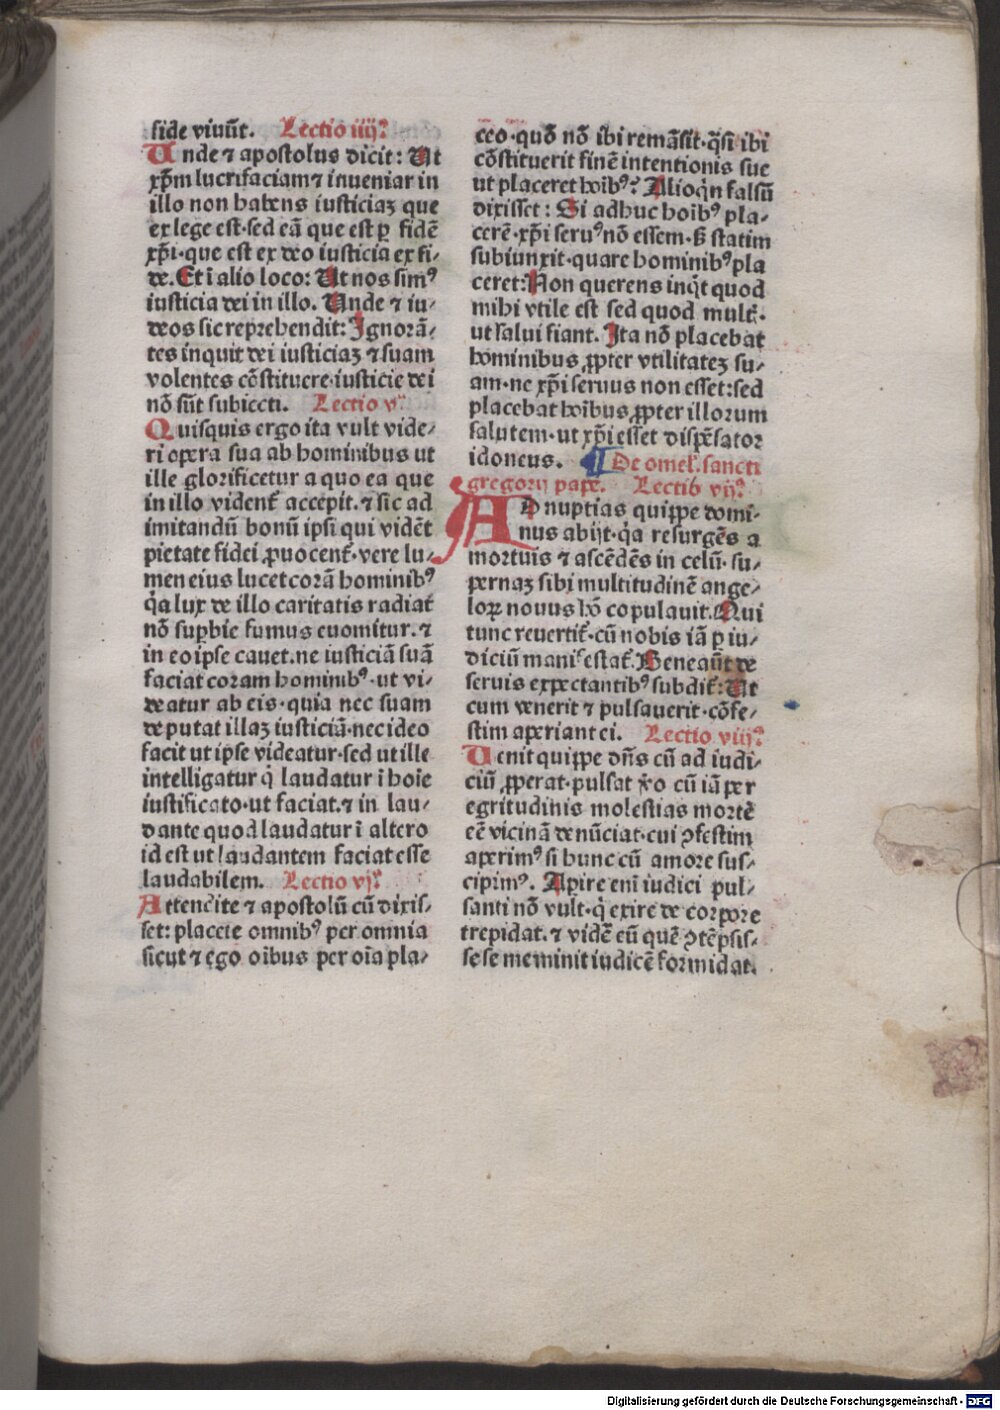 fide viuūt. Lectio iiij?
Vnde ⁊ apostolus dicit: Ut
xp̄m lucrifaciam ⁊ inueniar in
illo non habens iusticiaꝫ que
ex lege est·sed eā que est ꝑ fidē
xp̄i·que est ex deo iusticia ex fi/
de. Et ī alio loco: Ut nos simꝰ
iusticia dei in illo. Unde ⁊ iu/
deos sic reprehendit: Ignorā/
tes inquit dei iusticiaꝫ ⁊ suam
volentes cōstituere·iusticie dei
nō sūt subiecti. Lectio v
Quisquis ergo ita vult vide/
ri opera sua ab hominibus ut
ille glorificetur a quo ea que
in illo vident̄ accepit. ⁊ sic ad
imitandū bonū ipsi qui vidēt
pietate fidei ꝓuocent̄·vere lu/
men eius lucet corā hominibꝰ
q̇a lux de illo caritatis radiat
nō suꝑbie fumus euomitur. ⁊
in eo ipse cauet.ne iusticiā suā
faciat coram hominibꝰ·ut vi/
deatur ab eis·quia nec suam
deputat illaꝫ iusticiā·nec ideo
facit ut ipse videatur·sed ut ille
intelligatur q̇ laudatur ī hoīe
iustificato·ut faciat.⁊ in lau/
dante quod laudatur ī altero
id est ut laudantem faciat esse
laudabilem. Lectio vj?
Attendite ⁊ apostolū cū dixis/
set: placete omnibꝰ per omnia
sicut ⁊ ego oībus per oīa pla/
ceo·quō nō ibi remāsit·q̄si ibi
cōstituerit finē intentionis sue
ut placeret hoībꝰ? Alioq̇n falsū
dixisset: Si adhuc hoībꝰ pla/
cerē·xp̄i seruꝰ nō essem·ß statim
subiunxit·quare hominibꝰ pla
ceret: Non querens inq̇t quod
mihi vtile est sed quod mult̄.
ut salui fiant. Ita nō placebat
hominibus ꝓpter vtilitateꝫ su/
am·ne xp̄i seruus non esset:sed
placebat hoībus ꝓpter illorum
salutem·ut xp̄i esset dispēsator
idoneus. De omel. sancti
gregorij pape. Lectio vij?
AD nuptias quippe domi/
nus abijt·q̇a resurgēs a
mortuis ⁊ ascēdēs in celū·su/
pernaꝫ sibi multitudinē ange/
loꝝ nouus hō copulauit. Qui
tunc reuertit̄·cū nobis iā ꝑ iu/
diciū manifestat̄. Beneaūt de
seruis expectantibꝰ subdit̄: Ut
cum venerit ⁊ pulsauerit·cōfe/
stim aperiant ei. Lectio viij?
Venit quippe dn̄s cū ad iudi/
ciū ꝓperat·pulsat v̊o cū iā per
egritudinis molestias mortē
eē vicinā denūciat·cui ꝯfestim
aperimꝰ si hunc cū amore sus/
cipimꝰ. Aperire eni iudici pul/
santi nō vult·q̇ exire de corpore
trepidat.⁊ vidē eū quē ꝯtēpsis/
se se meminit iudicē formidat.
Digitalisierung gefördert durch die Deutsche Forschungsgemeinschaft - DFG